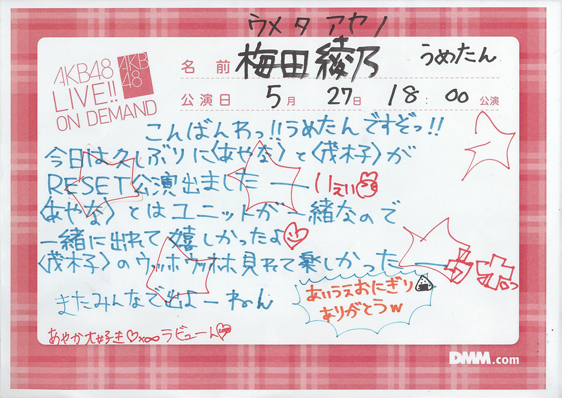 ウメタ アヤノ
AKB48
LIVE!!
ON DEMAND
AKB
48
名前 梅田綾乃 うめたん
公演日 5月 27日 18:00 公演
こんばんわっ!!うめたんですぞっ!!
今日は久しぶりに〈あやな〉と〈茂木子〉が
RESET公演出ましたー いえい
〈あやな〉とはユニットが一緒なので
一緒に出れて嬉しかったよ
〈茂木子〉のウッホウッホホ見れて楽しかったー
またみんなで出よーねん
あいうえおにぎり
ありがとうw
あやか大好き♡×∞ラビューん
DMM.com